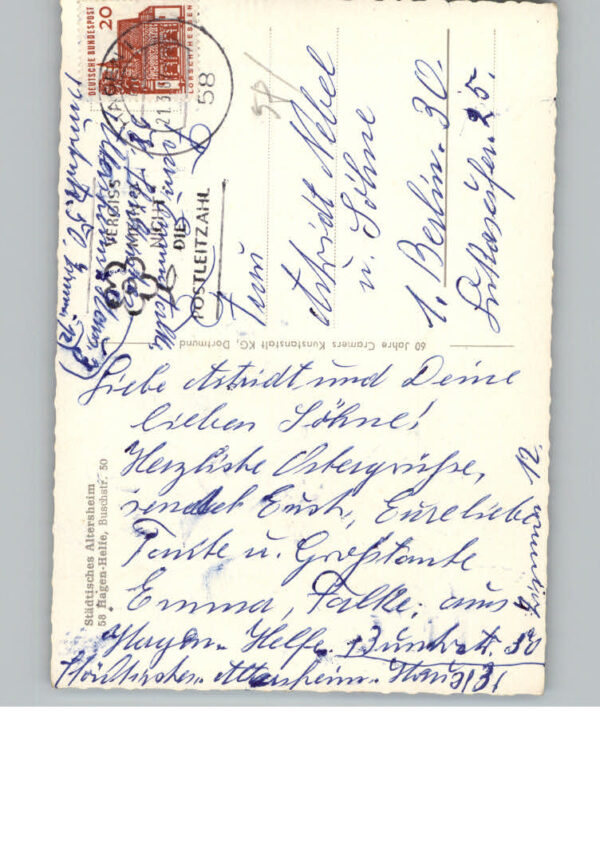 DEUTSCHE BUNDESPOST
20
LORSCH/HESSEN
HAGEN
58
21.3.
VERGISS
NICHT
DIE
POSTLEITZAHL
58/
Frau
Astridt Nebel
u. Söhne
1. Berlin. 30.
25.
60 Jahre Cramers Kunstanstalt KG, Dortmund
Städtisches Altersheim
58 Hagen-Helfe, Buschstr. 50
Liebe Astridt und Deine
lieben Söhne!
Herzliche Ostergrüße,
sendet Euch, Eure liebe
Tante u. Großtante
Emma, Falke, aus
Hagen-Helfe. Buschstr. 50
Altersheim. Haus 3
Zimmer 12.